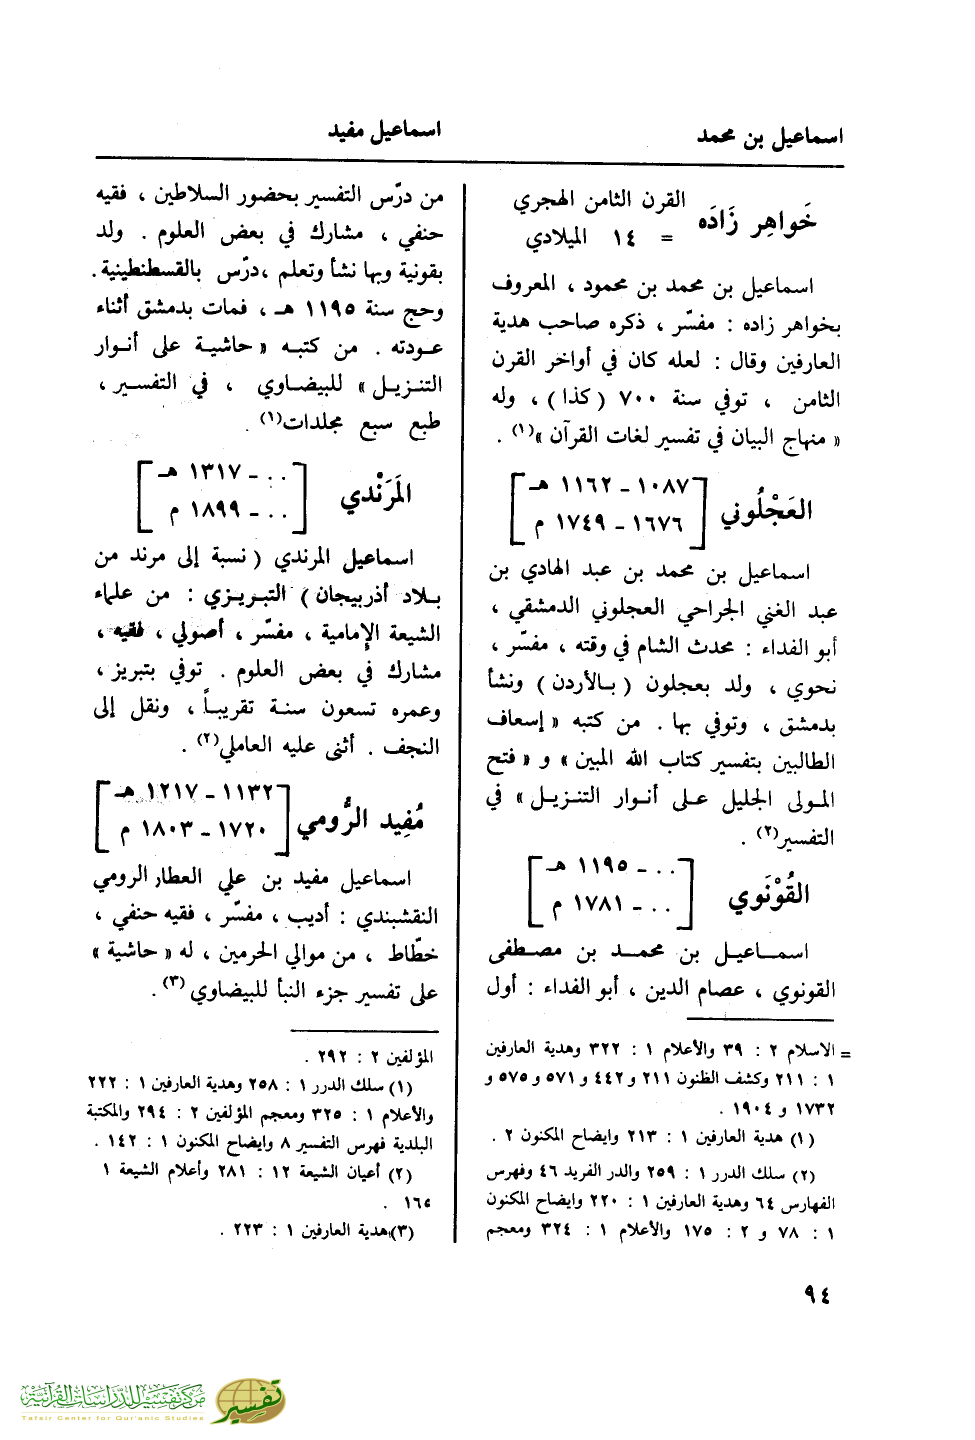 اسماعيل بن محمد
اسماعيل مفيد
خَواهِر زَادَه
القرن الثامن الهجري
= ١٤ الميلادي
اسماعيل بن محمد بن محمود ، المعروف
بخواهر زاده : مفسّر ، ذكره صاحب هدية
العارفين وقال : لعله كان في أواخر القرن
الثامن ، توفي سنة ٧٠٠ (كذا) ، وله
« منهاج البيان في تفسير لغات القرآن »(١) .
العَجْلُوني
[١٠٨٧ - ١١٦٢ هـ
١٦٧٦ - ١٧٤٩ م]
اسماعيل بن محمد بن عبد الهادي بن
عبد الغني الجراحي العجلوني الدمشقي ،
أبو الفداء : محدث الشام في وقته ، مفسّر ،
نحوي ، ولد بعجلون (بالأردن) ونشأ
بدمشق ، وتوفي بها . من كتبه « إسعاف
الطالبين بتفسير كتاب الله المبين » و « فتح
المولى الجليل على أنوار التنزيل » في
التفسير(٢) .
القُوْنَوي
[. . - ١١٩٥ هـ
. . - ١٧٨١ م]
اسماعيل بن محمد بن مصطفى
القونوي ، عصام الدين ، أبو الفداء : أول
= الاسلام ٢ : ٣٩ والأعلام ١ : ٣٢٢ وهدية العارفين
١ : ٢١١ وكشف الظنون ٢١١ و ٤٤٢ و ٥٧١ و ٥٧٥ و
١٧٣٢ و ١٩٠٤ .
(١) هدية العارفين ١ : ٢١٣ وايضاح المكنون ٢ .
(٢) سلك الدرر ١ : ٢٥٩ والدر الفريد ٤٦ وفهرس
الفهارس ٦٤ وهدية العارفين ١ : ٢٢٠ وايضاح المكنون
١ : ٧٨ و ٢ : ١٧٥ والأعلام ١ : ٣٢٤ ومعجم
من درّس التفسير بحضور السلاطين ، فقيه
حنفي ، مشارك في بعض العلوم . ولد
بقونية وبها نشأ وتعلم ، درّس بالقسطنطينية .
وحج سنة ١١٩٥ هـ ، فمات بدمشق أثناء
عودته . من كتبه « حاشية على أنوار
التنزيل » للبيضاوي ، في التفسير ،
طبع سبع مجلدات(١) .
المَرَنْدي
[. . - ١٣١٧ هـ
. . - ١٨٩٩ م]
اسماعيل المرندي (نسبة إلى مرند من
بلاد أذربيجان) التبريزي : من علماء
الشيعة الإمامية ، مفسّر ، أصولي ، فقيه ،
مشارك في بعض العلوم . توفي بتبريز ،
وعمره تسعون سنة تقريباً ، ونقل إلى
النجف . أثنى عليه العاملي(٢) .
مُفِيد الرُّومي
[١١٣٢ - ١٢١٧ هـ
١٧٢٠ - ١٨٠٣ م]
اسماعيل مفيد بن علي العطار الرومي
النقشبندي : أديب ، مفسّر ، فقيه حنفي ،
خطّاط ، من موالي الحرمين ، له « حاشية »
على تفسير جزء النبأ للبيضاوي(٣) .
المؤلفين ٢ : ٢٩٢ .
(١) سلك الدرر ١ : ٢٥٨ وهدية العارفين ١ : ٢٢٢
والأعلام ١ : ٣٢٥ ومعجم المؤلفين ٢ : ٢٩٤ والمكتبة
البلدية فهرس التفسير ٨ وايضاح المكنون ١ : ١٤٢ .
(٢) أعيان الشيعة ١٢ : ٢٨١ وأعلام الشيعة ١
١٦٤ .
(٣) هدية العارفين ١ : ٢٢٣ .
٩٤
مركز تفسير للدراسات القرآنية
Tafsir Center for Qur'anic Studies
تفسير